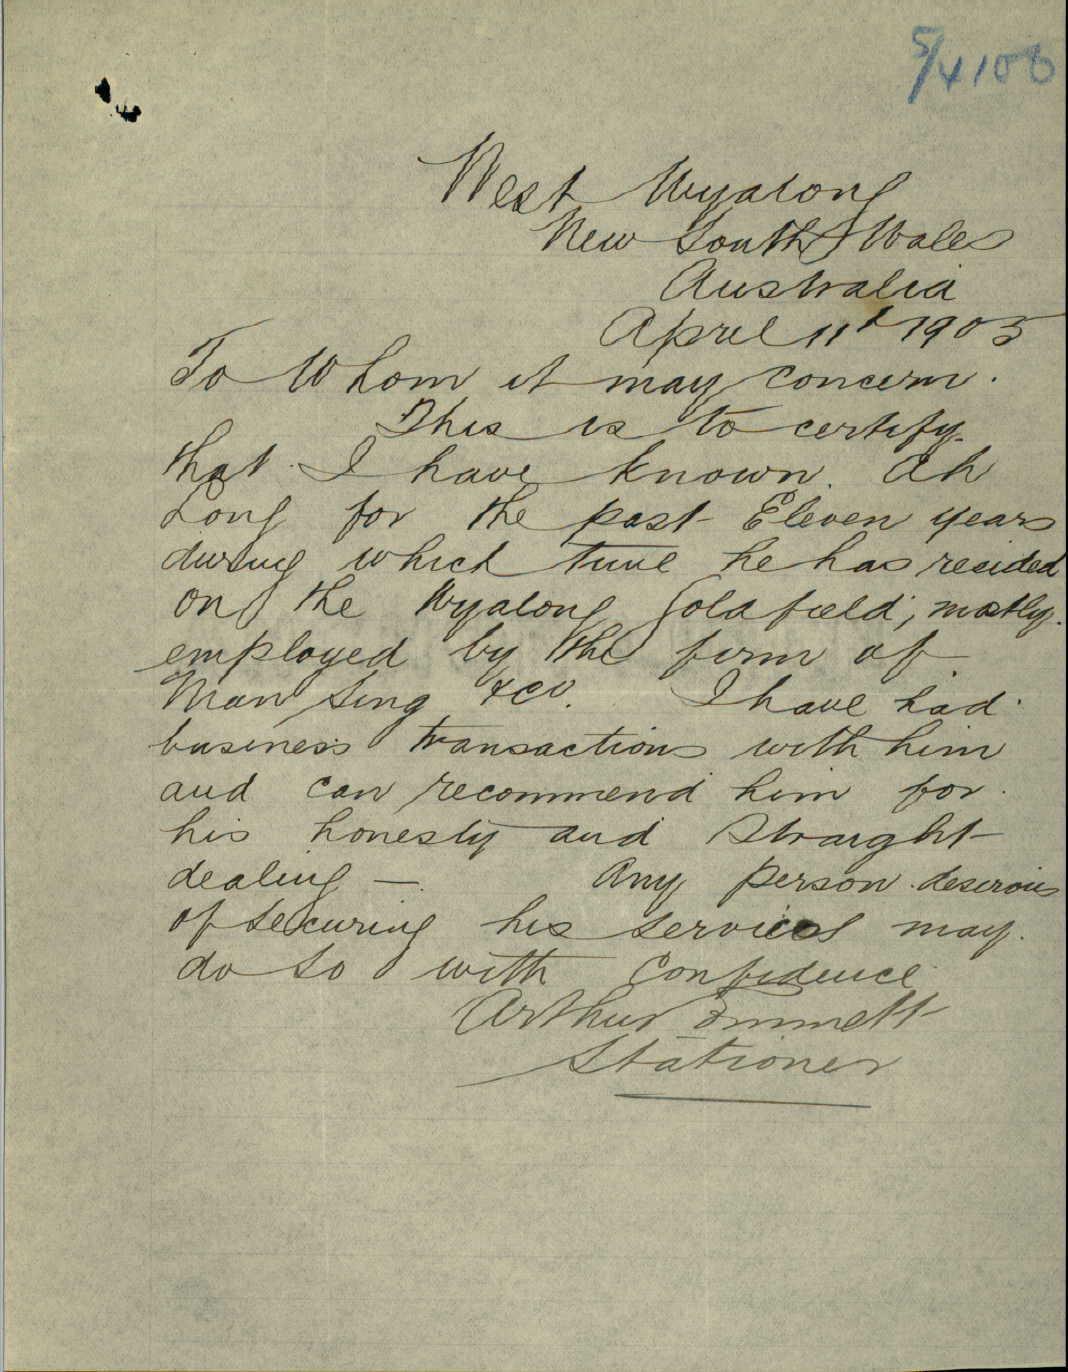 5/4108
West Wyalong
New South Wales
Australia
April 11th 1905
To Whom it may concern.
This is to certify
that I have known. Ah
Long for the past Eleven years
during which time he has resided
on the Wyalong Goldfield, mostly
employed by the firm of
Man Sing & Co. I have had
business transactions with him
and can recommend him for
his honesty and straight
dealing — Any person desirous
of securing his services may
do so with confidence
Arthur Emmett
Stationer